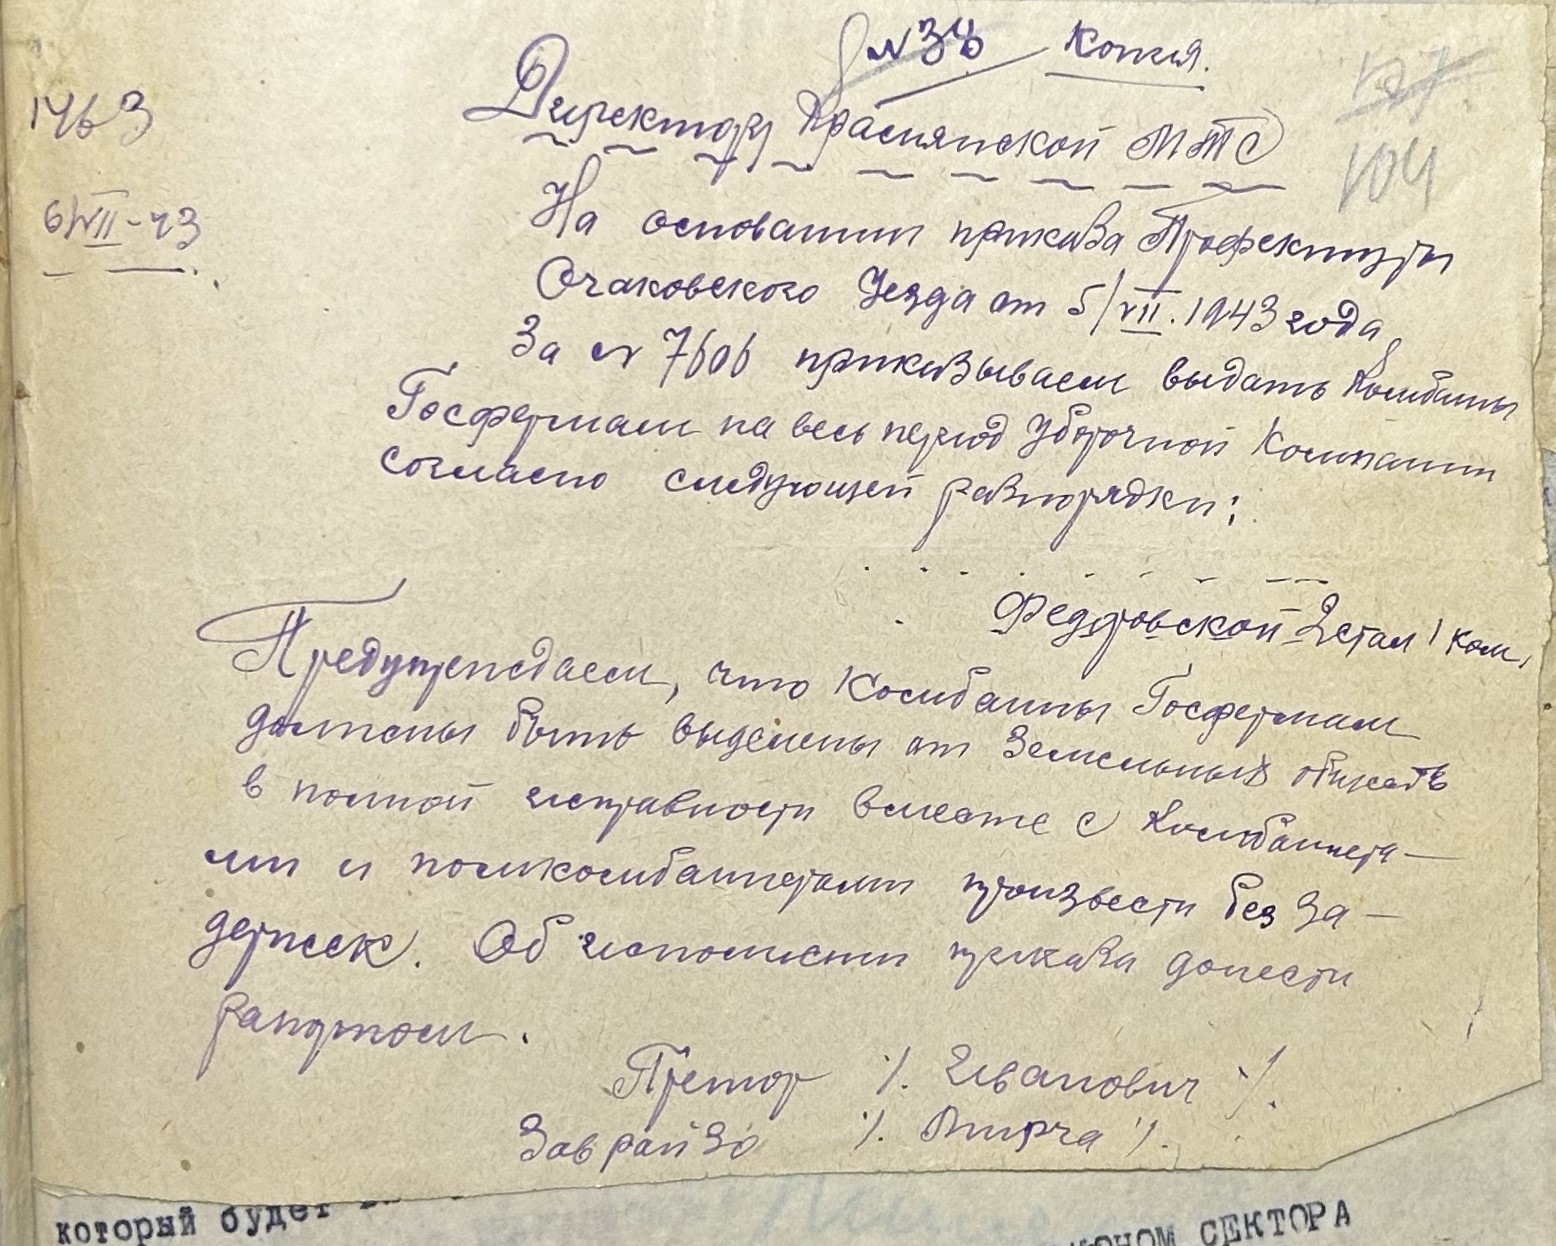 № 38 Копия.
127
104
1463
6/VII-43
Директору Краснянской МТС
На основании приказа Префектуры
Очаковского Уезда от 5/VII.1943 года
За № 7606 приказываем выдать Комбайны
Госфермам на весь период Уборочной Компании
согласно следующей разпорядки:
Федоровской 2 стал 1 ком.
Предупреждаем, что Комбайны Госфермам
должны быть выделены от Земельных общест
в полной исправности вместе с Комбайнера-
ми и помкомбайнерами произвести без за-
держек. Об исполнении приказа донести
рапортом.
Претор /. Иванович /.
Заврайзо /. Мирча /.
который будет
СЕКТОРА